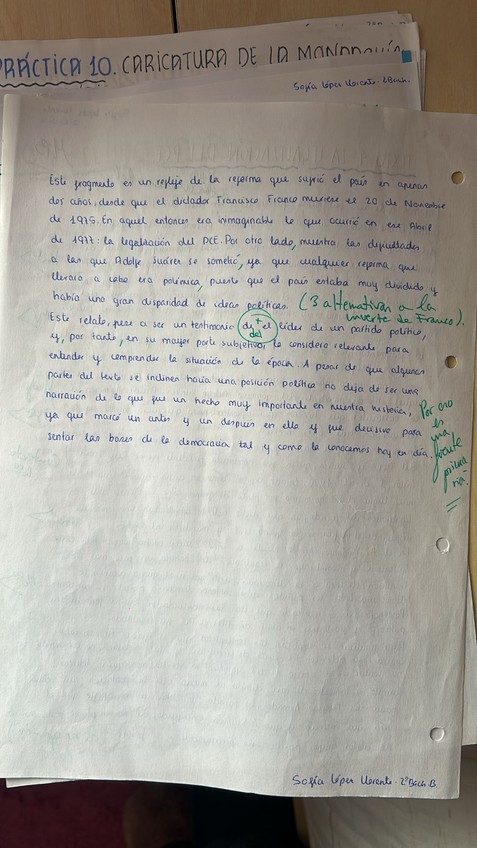 PRÁCTICA 10. CARICATURA DE LA MONARQUÍA
Sofía López Llorente. 2ºBach.
Este fragmento es un reflejo de la reforma que sufrió el país en apenas
dos años, desde que el dictador Francisco Franco muriese el 20 de Noviembre
de 1975. En aquel entonces era inimaginable lo que ocurrió en ese Abril
de 1977: la legalización del PCE. Por otro lado, muestra las dificultades
a las que Adolfo Suárez se sometió, ya que cualquier reforma que
llevara a cabo era polémica, puesto que el país estaba muy dividido y
había una gran disparidad de ideas políticas. (3 alternativas a la
muerte de Franco).
Este relato, pese a ser un testimonio de el líder de un partido político
del
y, por tanto, en su mayor parte subjetivo, lo considero relevante para
entender y comprender la situación de la época. A pesar de que algunas
partes del texto se inclinen hacia una posición política no deja de ser una
narración de lo que fue un hecho muy importante en nuestra historia,
ya que marcó un antes y un después en ella y fue decisivo para
sentar las bases de la democracia tal y como la conocemos hoy en día.
Por eso
es
una
fuente
prima
ria.
Sofía López Llorente. 2ºBach.B.